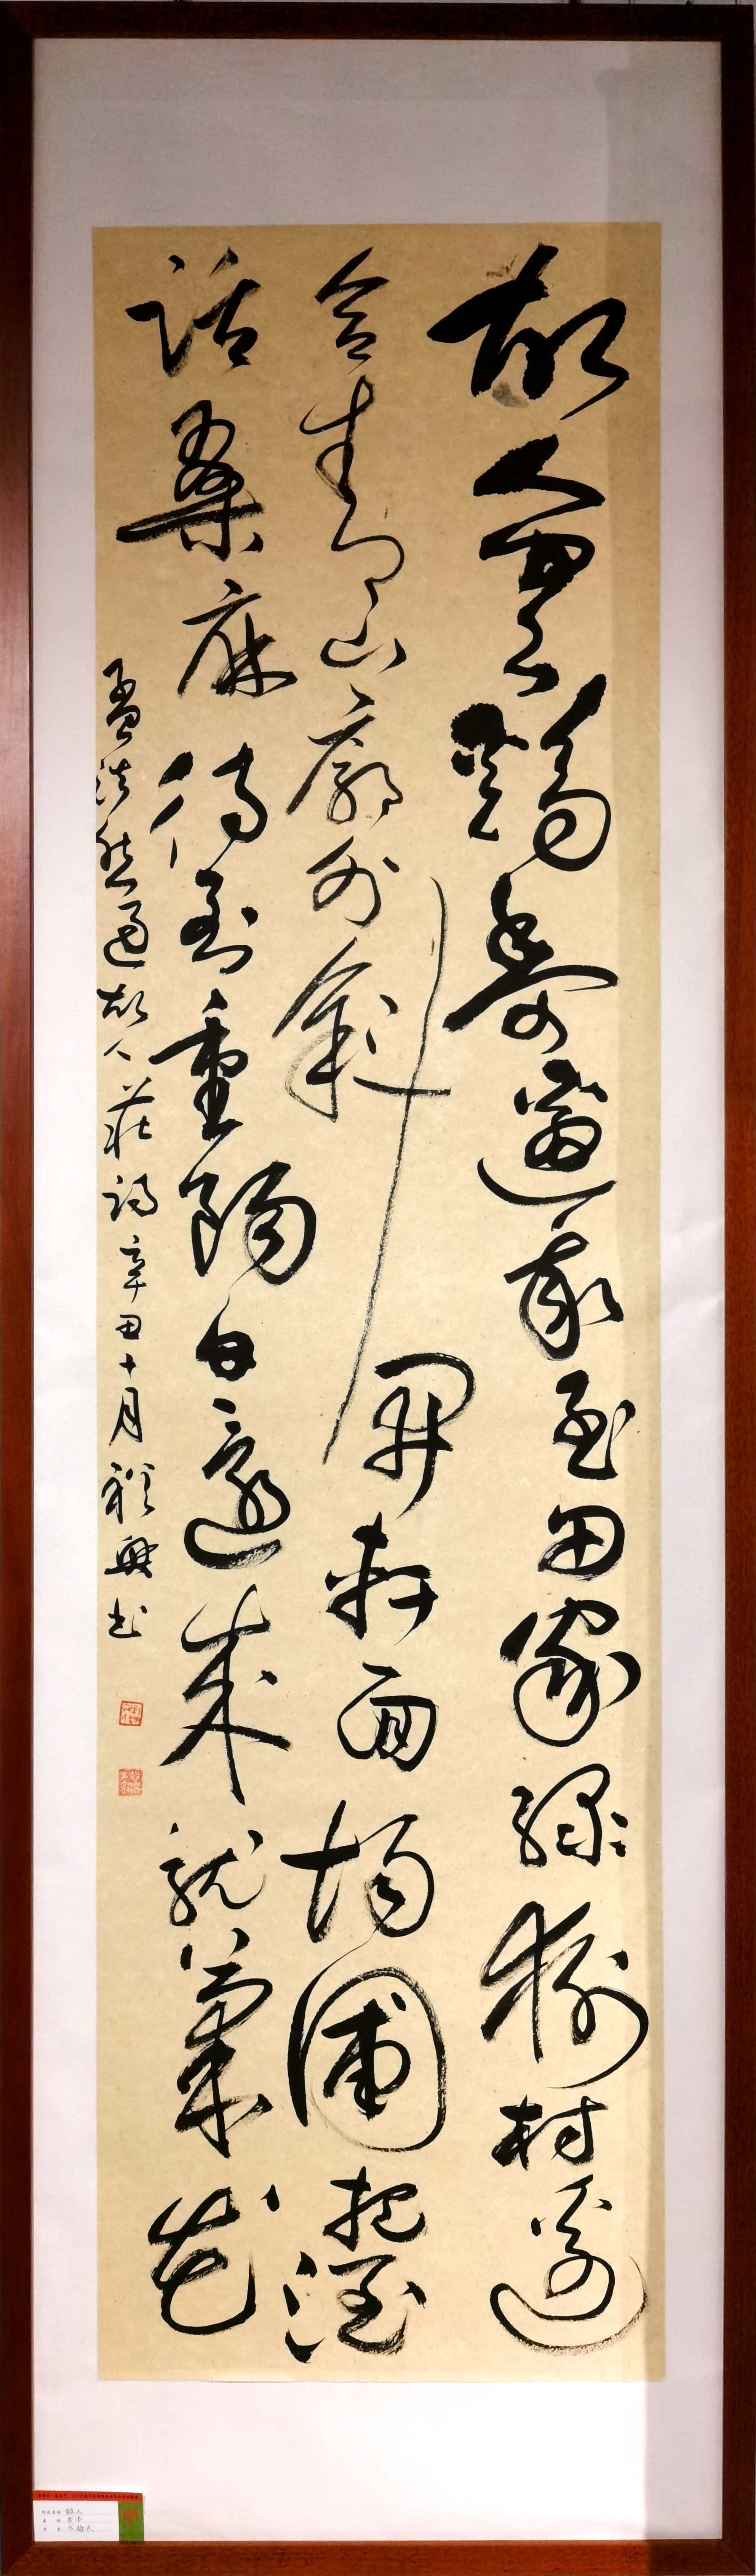 故人具雞黍邀我至田家綠樹村邊
合青山廓外斜開軒面場圃把酒
話桑麻待到重陽日還來就菊花
孟浩然過故人莊詩辛丑十月興书
故人